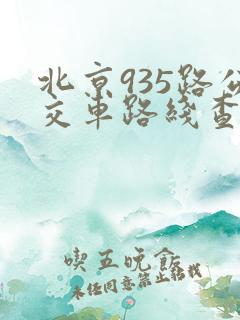 北京935路公
交车路线查
喫五晚飯
未经同意禁止转载